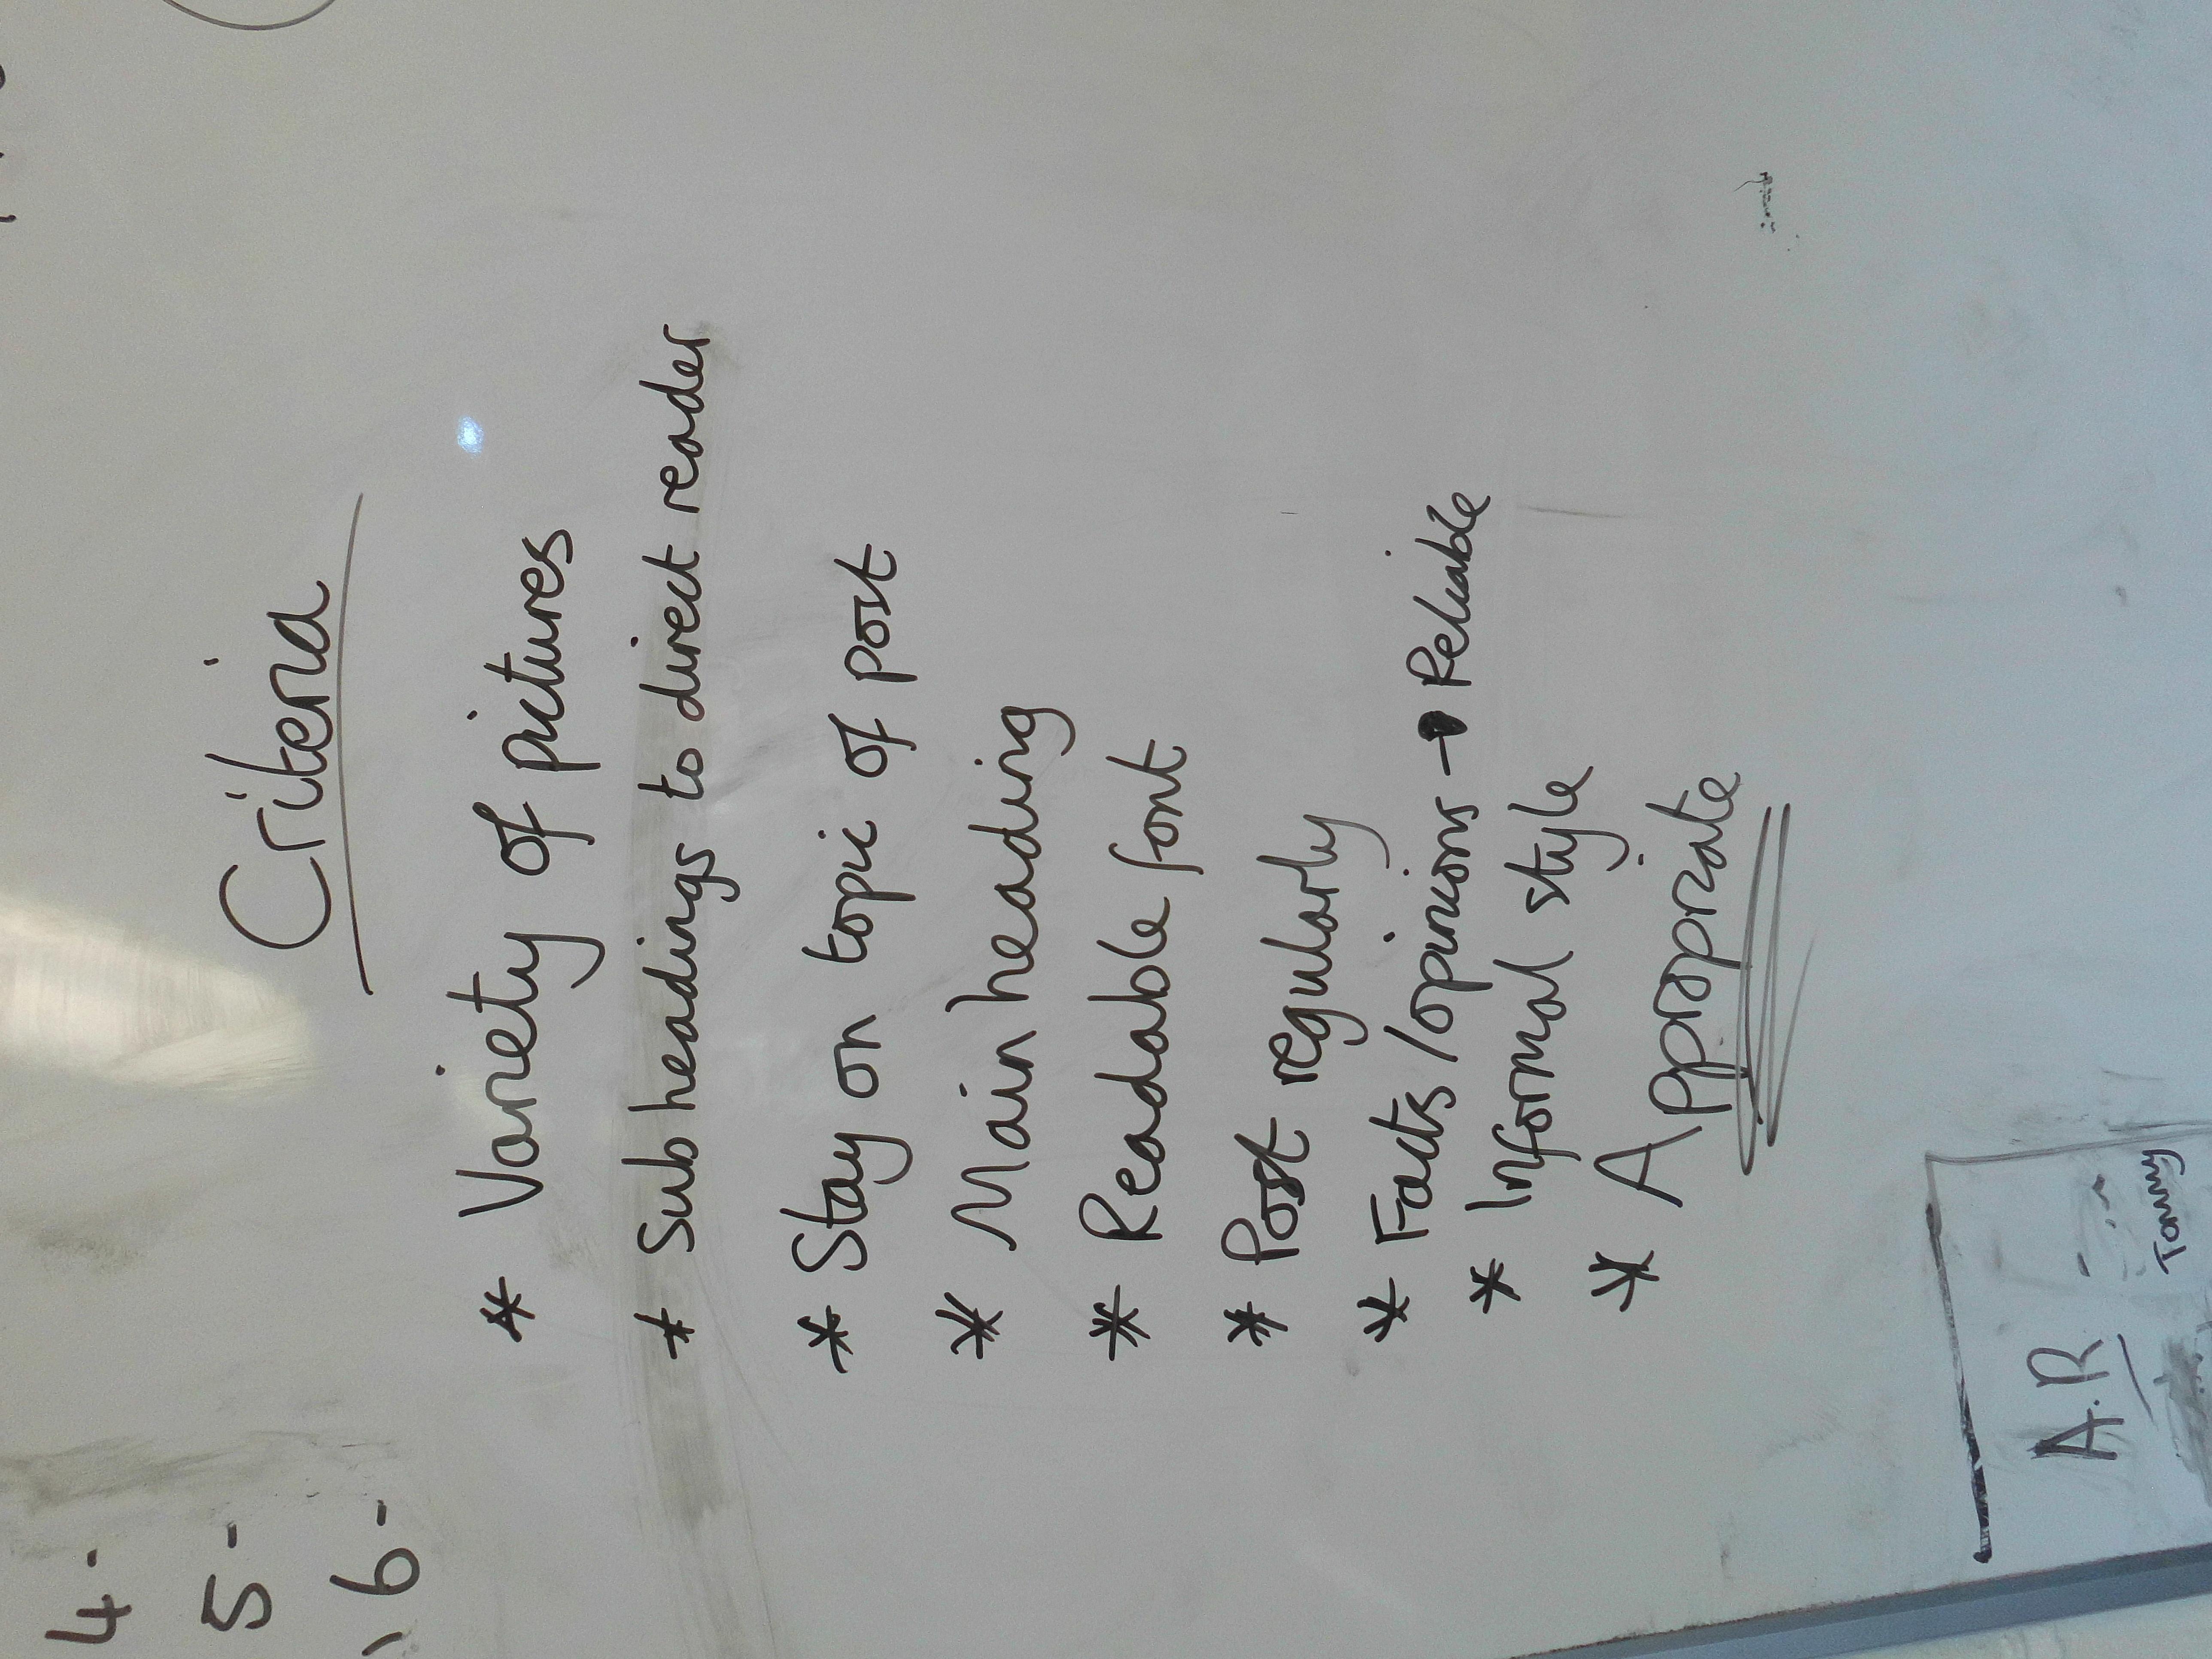 4-
5-
6-
Criteria
* Variety of pictures
* Sub headings to direct reader
* Stay on topic of post
* Main heading
* Readable font
* Post regularly
* Facts/opinions → Reliable
* Informal style
* Appropriate
A.R
Tommy